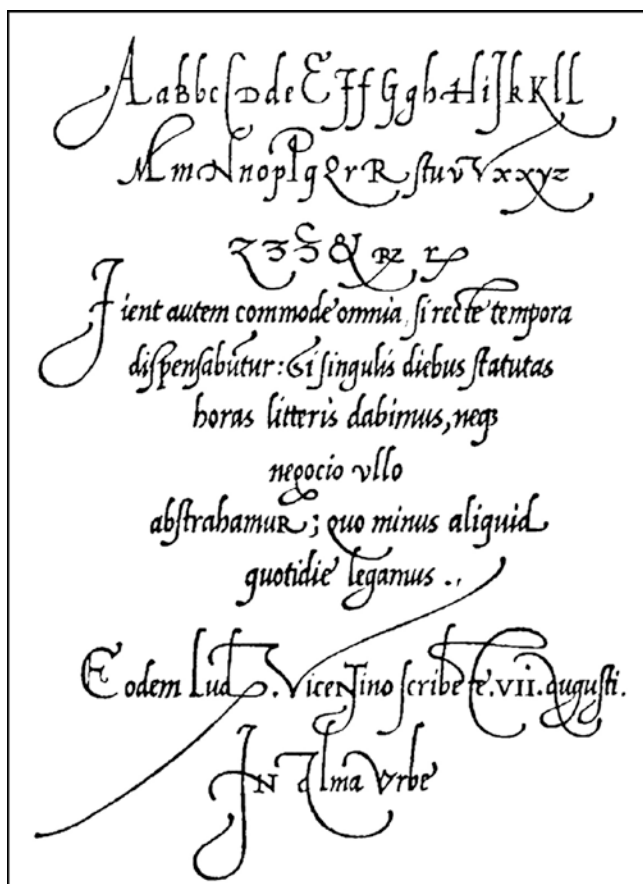 AaBbcCDdeEFfGghHiJkKll
MmNnopPqQrRſtuvVxxyz
& Rz
Fient autem commode omnia, ſi recte tempora
diſpenſabūtur: Si ſingulis diebus ſtatutas
horas litteris dabimus, neqꝫ
negocio vllo
abſtrahamuR; quo minus aliquid
quotidie legamus ..
Eodem Lud. Vicentino ſcribēte. VII. auguſti.
IN alma Vrbe